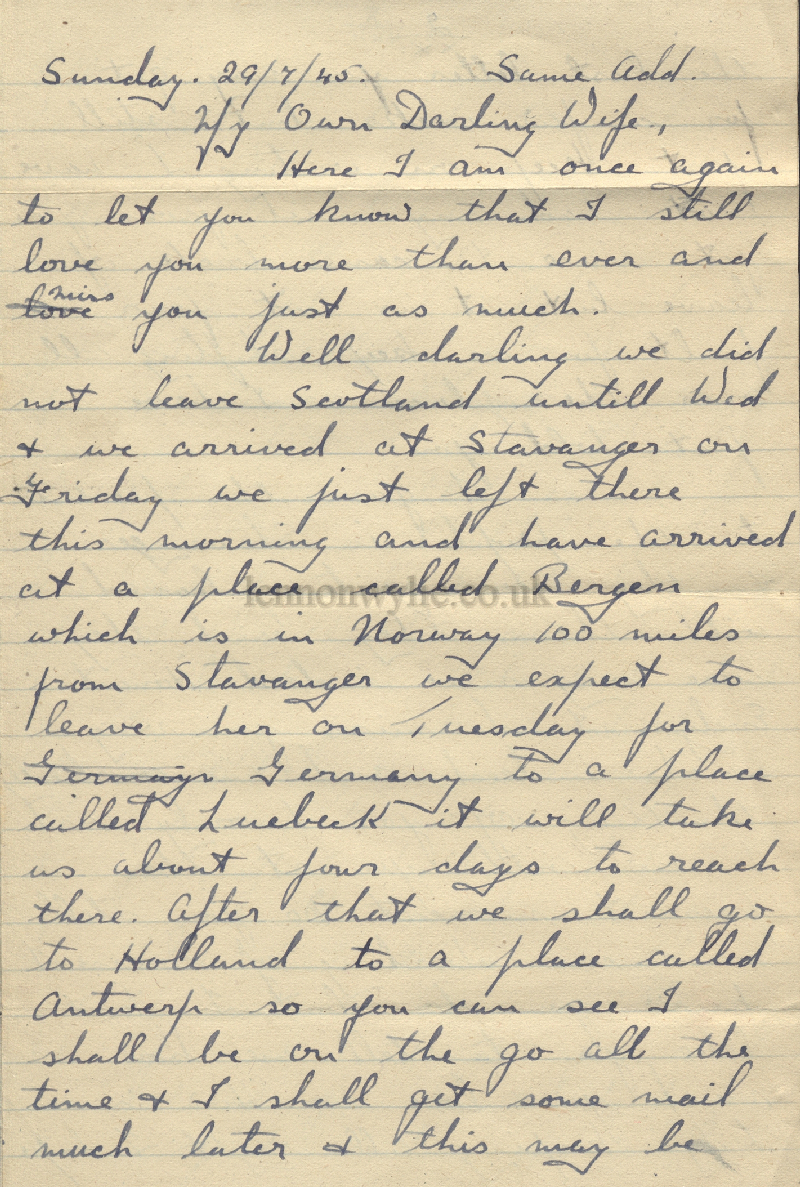 Sunday. 29/7/45. Same Add.
My Own Darling Wife.,
Here I am once again
to let you know that I still
love you more than ever and
love miss you just as much.
Well darling we did
not leave Scotland untill Wed
& we arrived at Stavanger on
Friday we just left there
this morning and have arrived
at a place called Bergen
lennonwylie.co.uk
which is in Norway 100 miles
from Stavanger we expect to
leave her on Tuesday for
Germany Germany to a place
called Luebeck it will take
us about four days to reach
there. After that we shall go
to Holland to a place called
Antwerp so you can see I
shall be on the go all the
time & I shall get some mail
much later & this may be